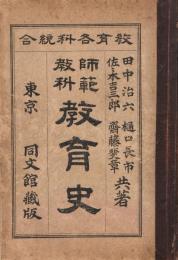 合統科各育教
田中治六
佐々木吉三郎
樋口長市
齋藤斐章
共著
師範
教科
教育史
東京
同文館藏版